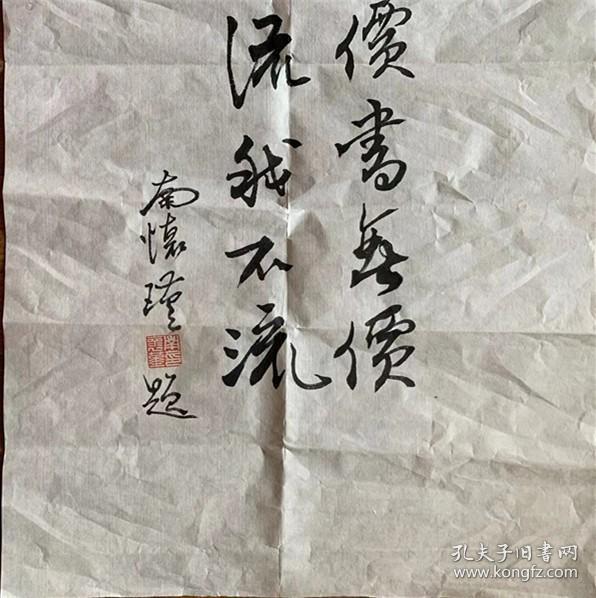 價書無價
流我不流
南懷瑾題
孔夫子旧书网
www.kongfz.com